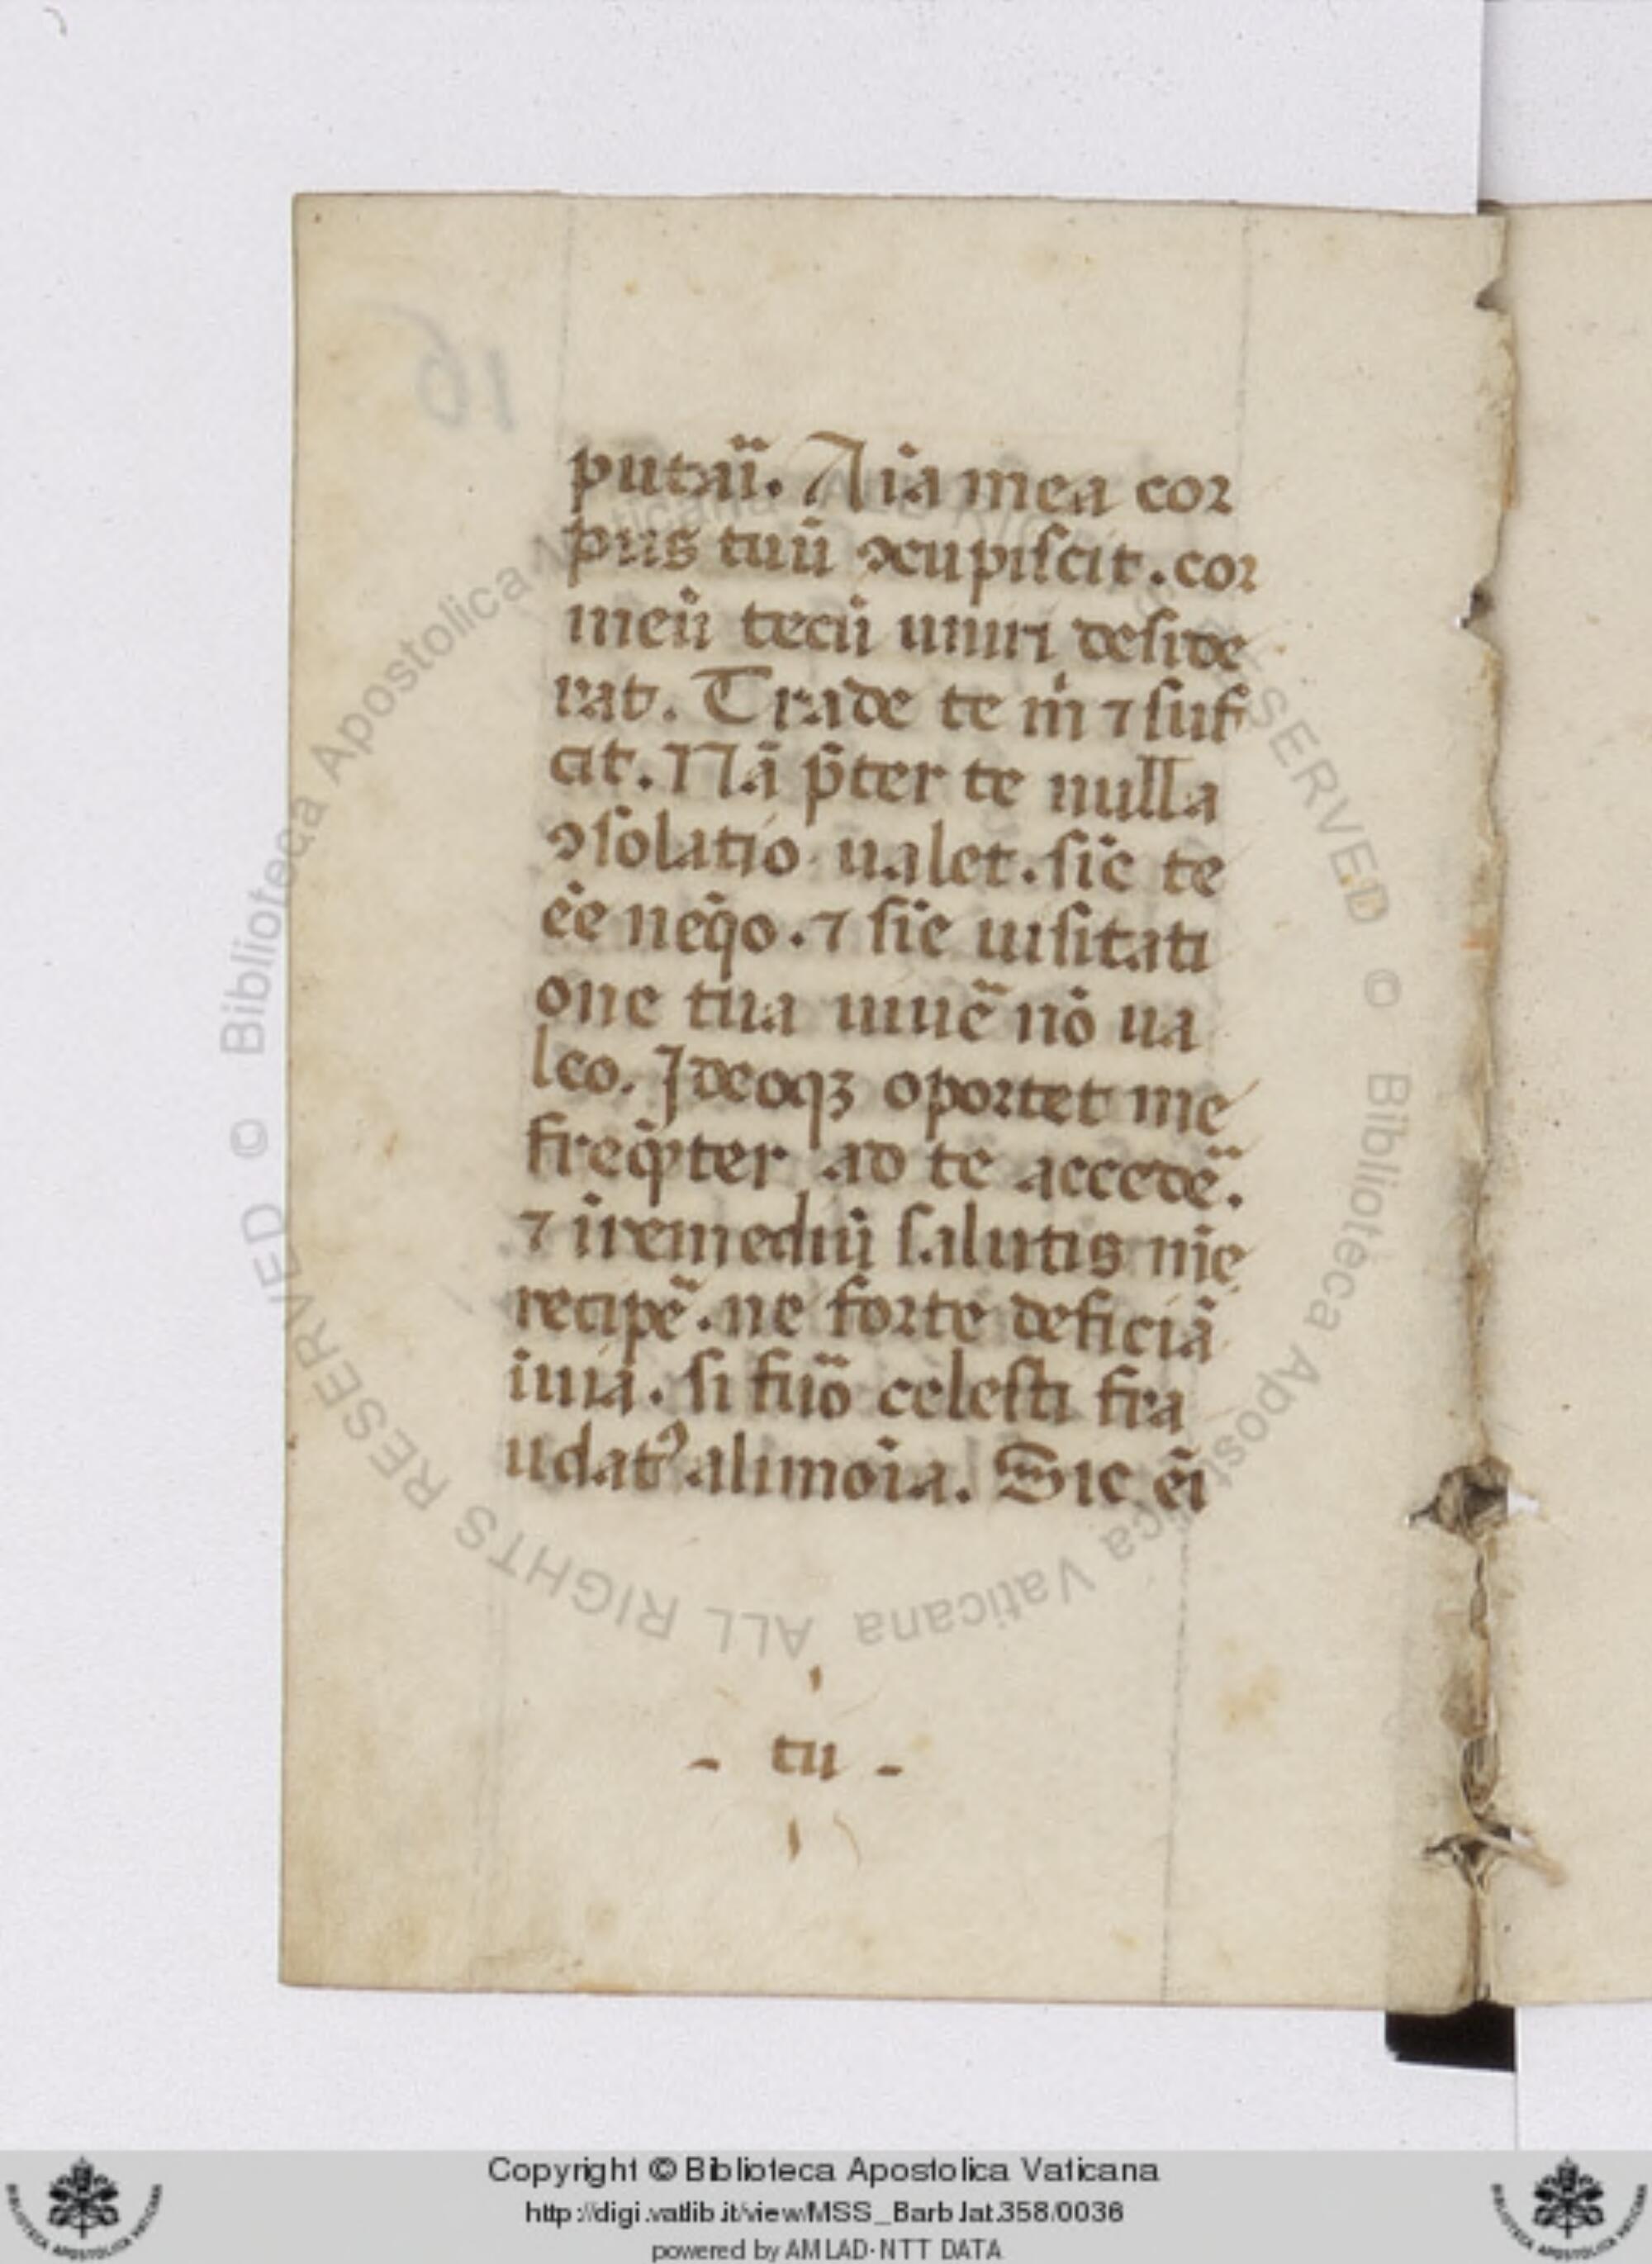 16
putarī. Aīa mea cor
pus tuū ꝯcupiſcit. cor
meū tecū uniri deſide
rat. Trade te m̄ ⁊ ſuf
cit. Nā p̄ter te nulla
ꝯſolatio ualet. ſīe te
ēe neq̄o. ⁊ ſīe uiſitati
one tua uiuē nō ua
leo. Ideoqꝫ oportet me
freq̄nter ad te accedē.
⁊ ī remediū ſalutis mē
recipē. ne forte deficiā
ī uia. ſi fuō celeſti fra
udatꝰ alimōia. Sic ēi
- tu -
© Biblioteca Apostolica Vaticana ALL RIGHTS RESERVED
Copyright © Biblioteca Apostolica Vaticana
http://digi.vatlib.it/view/MSS_Barb.lat.358/0036
powered by AMLAD-NTT DATA